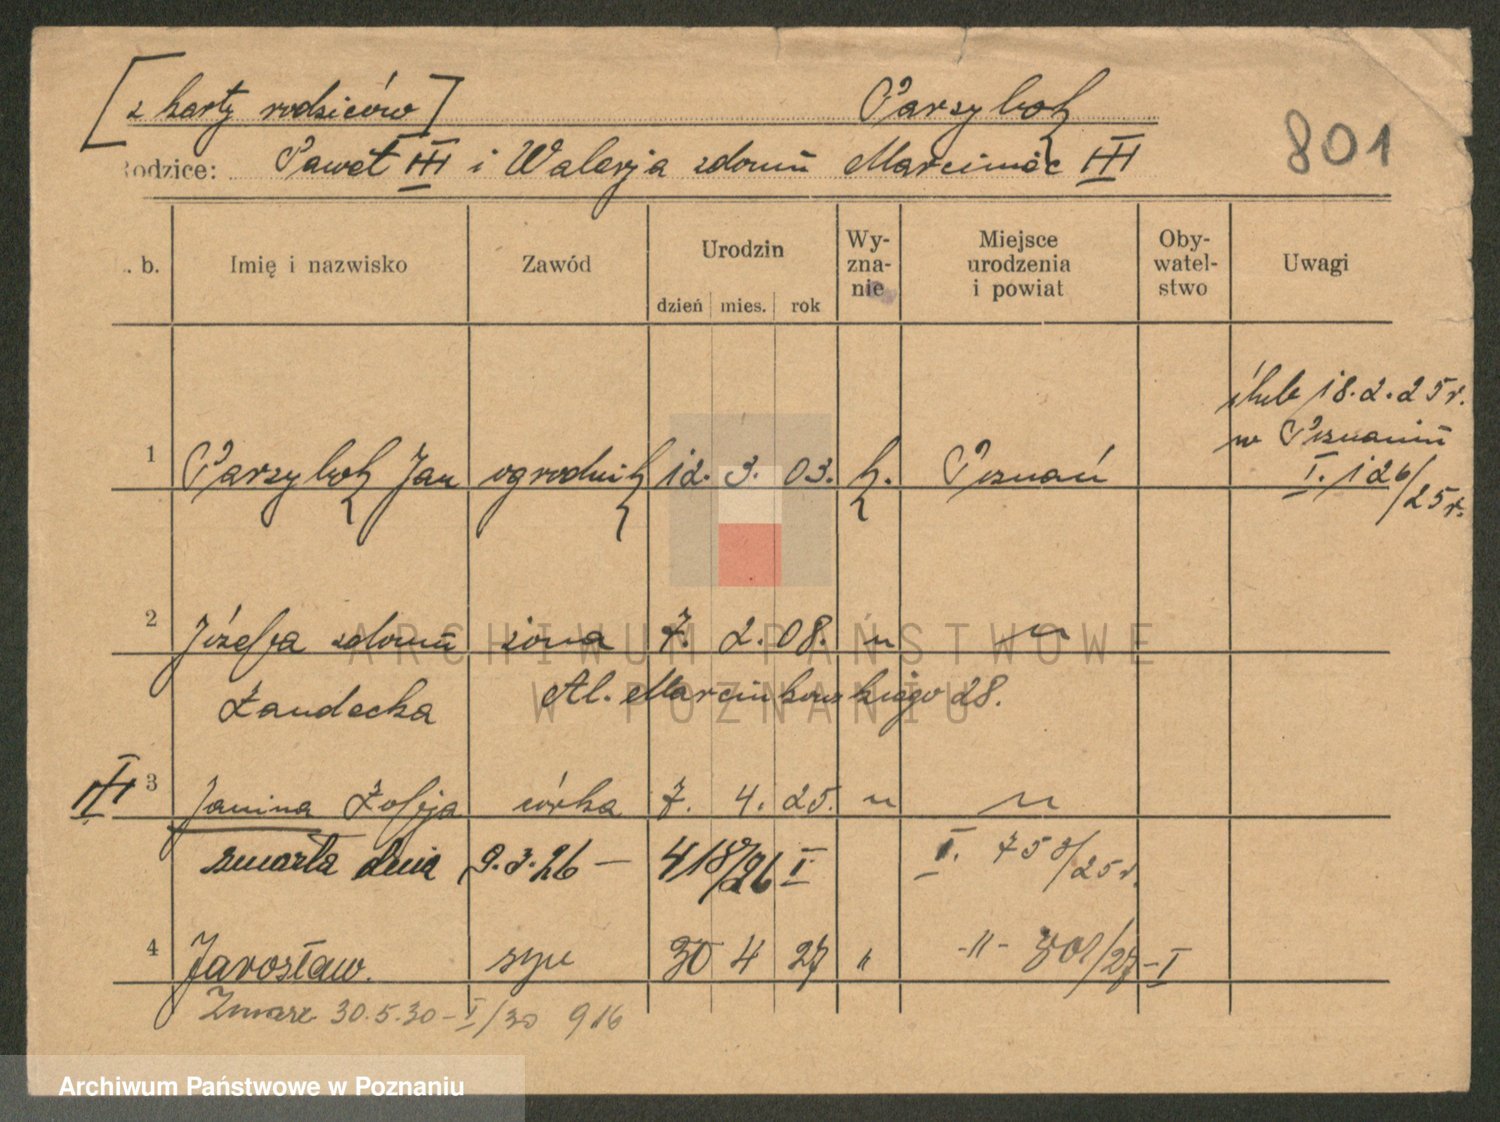 [z karty rodziców] Parzybok
801
Rodzice: Paweł III i Walerja zdomu Marciniec III
. b. Imię i nazwisko Zawód Urodzin dzień mies. rok Wy-zna-nie Miejsce urodzenia i powiat Oby-watel-stwo Uwagi
ślub 18.2.25 r.
w Poznaniu
I. 126/25 r.
1 Parzybok Jan ogrodnik 12. 3. 03. k. Poznań
2 Józefa zdomu żona 7. 2. 08. " "
Żandecka Al. Marcinkowskiego 28.
III 3 Janina Zofja córka 7. 4. 25. " "
zmarła dnia 9.3.26 — 418/26 I I. 758/25 r.
4 Jarosław. syn 30 4 27 " -"- 801/27 - I
Zmarł 30.5.30 - I/30 916
ARCHIWUM PAŃSTWOWE
W POZNANIU
Archiwum Państwowe w Poznaniu